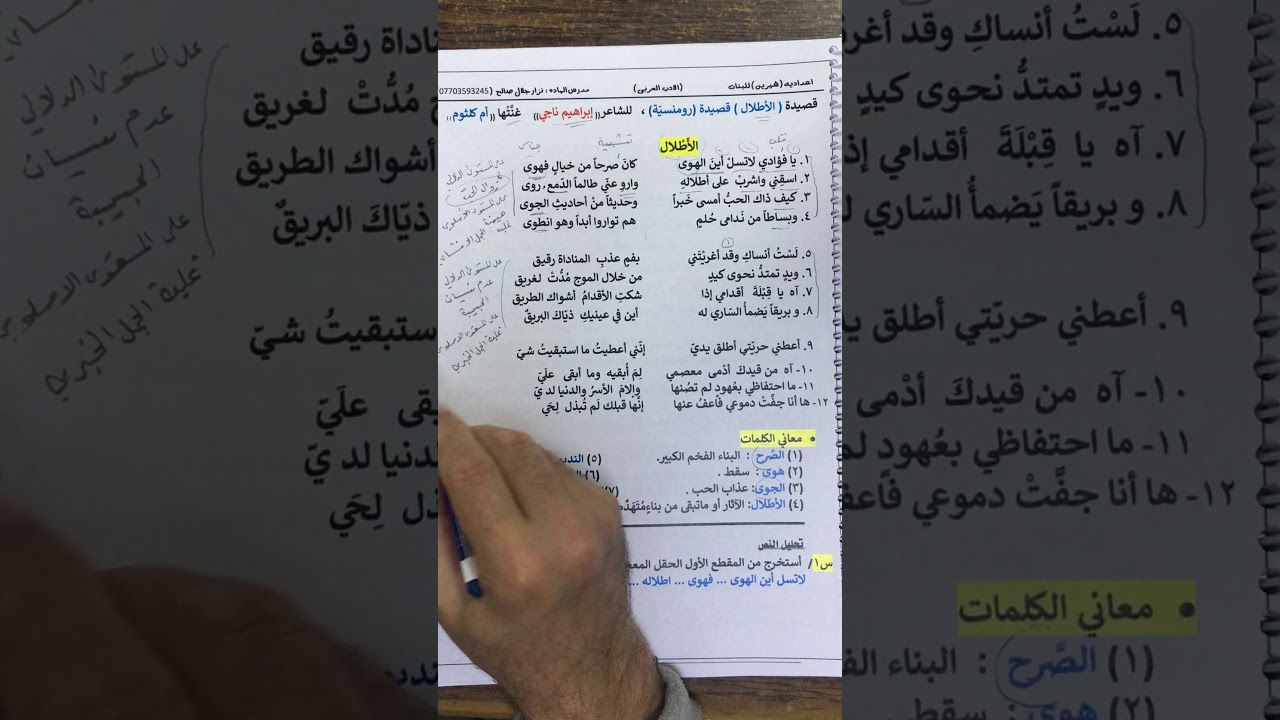 اعداديه (شيرين) للبنات (الادب العربي) مدرس الماده : نزار جلال صالح (07703593245)
قصيدة ( الأطلال ) قصيدة (رومنسيّة) ، للشاعر((إبراهيم ناجي)) غنّتها ((أم كلثوم))
الأَطْلال
١. يا فُؤادي لاتسلْ أينَ الهوى كانَ صرحاً من خيالٍ فهوى
٢. اسقِني واشربْ على أطلالِهِ واروِ عنّي طالما الدّمع روى
٣. كيف ذاك الحبُّ أمسى خَبراً وحَديثاً منْ أحاديثِ الجوى
٤. وبساطاً من نَدامى حُلمٍ هم تواروا أبداً وهو انطوى
٥. لَسْتُ أنساكِ وقد أغريْتني بفمٍ عذبِ المناداة رقيق
٦. ويدٍ تمتدُّ نحوى كيدٍ من خلال الموج مُدُّتْ لغريق
٧. آه يا قِبْلَةَ أقدامي إذا شكتِ الأقدامُ أشواك الطريق
٨. و بريقاً يَضمأُ السّاري له أين في عينيكِ ذيّاكَ البريقُ
٩. أعطني حريّتي أطلق يديّ إنّني أعطيتُ ما استبقيتُ شيّ
١٠- آه من قيدكَ أدْمى معصمي لِمَ أُبقيه وما أبقى علَيّ
١١- ما احتفاظي بعُهودٍ لم تصُنها وإلامَ الأسرُ والدنيا لديّ
١٢- ها أنا جفّتْ دموعي فَاعفُ عنها إنّها قبلك لَم تُبذل لِحَي
• معاني الكلمات
(١) الصَّرح : البناء الفخم الكبير. (٥)
(٢) هوى : سقط . (٦)
(٣) الجوى: عذاب الحب . (٧)
(٤) الأطلال: الآثار أو ماتبقى من بناءٍ
تحليل النص
س١/ أستخرج من المقطع الأول الحقل
لاتسل أين الهوى ... فهوى ... اطلاله ...